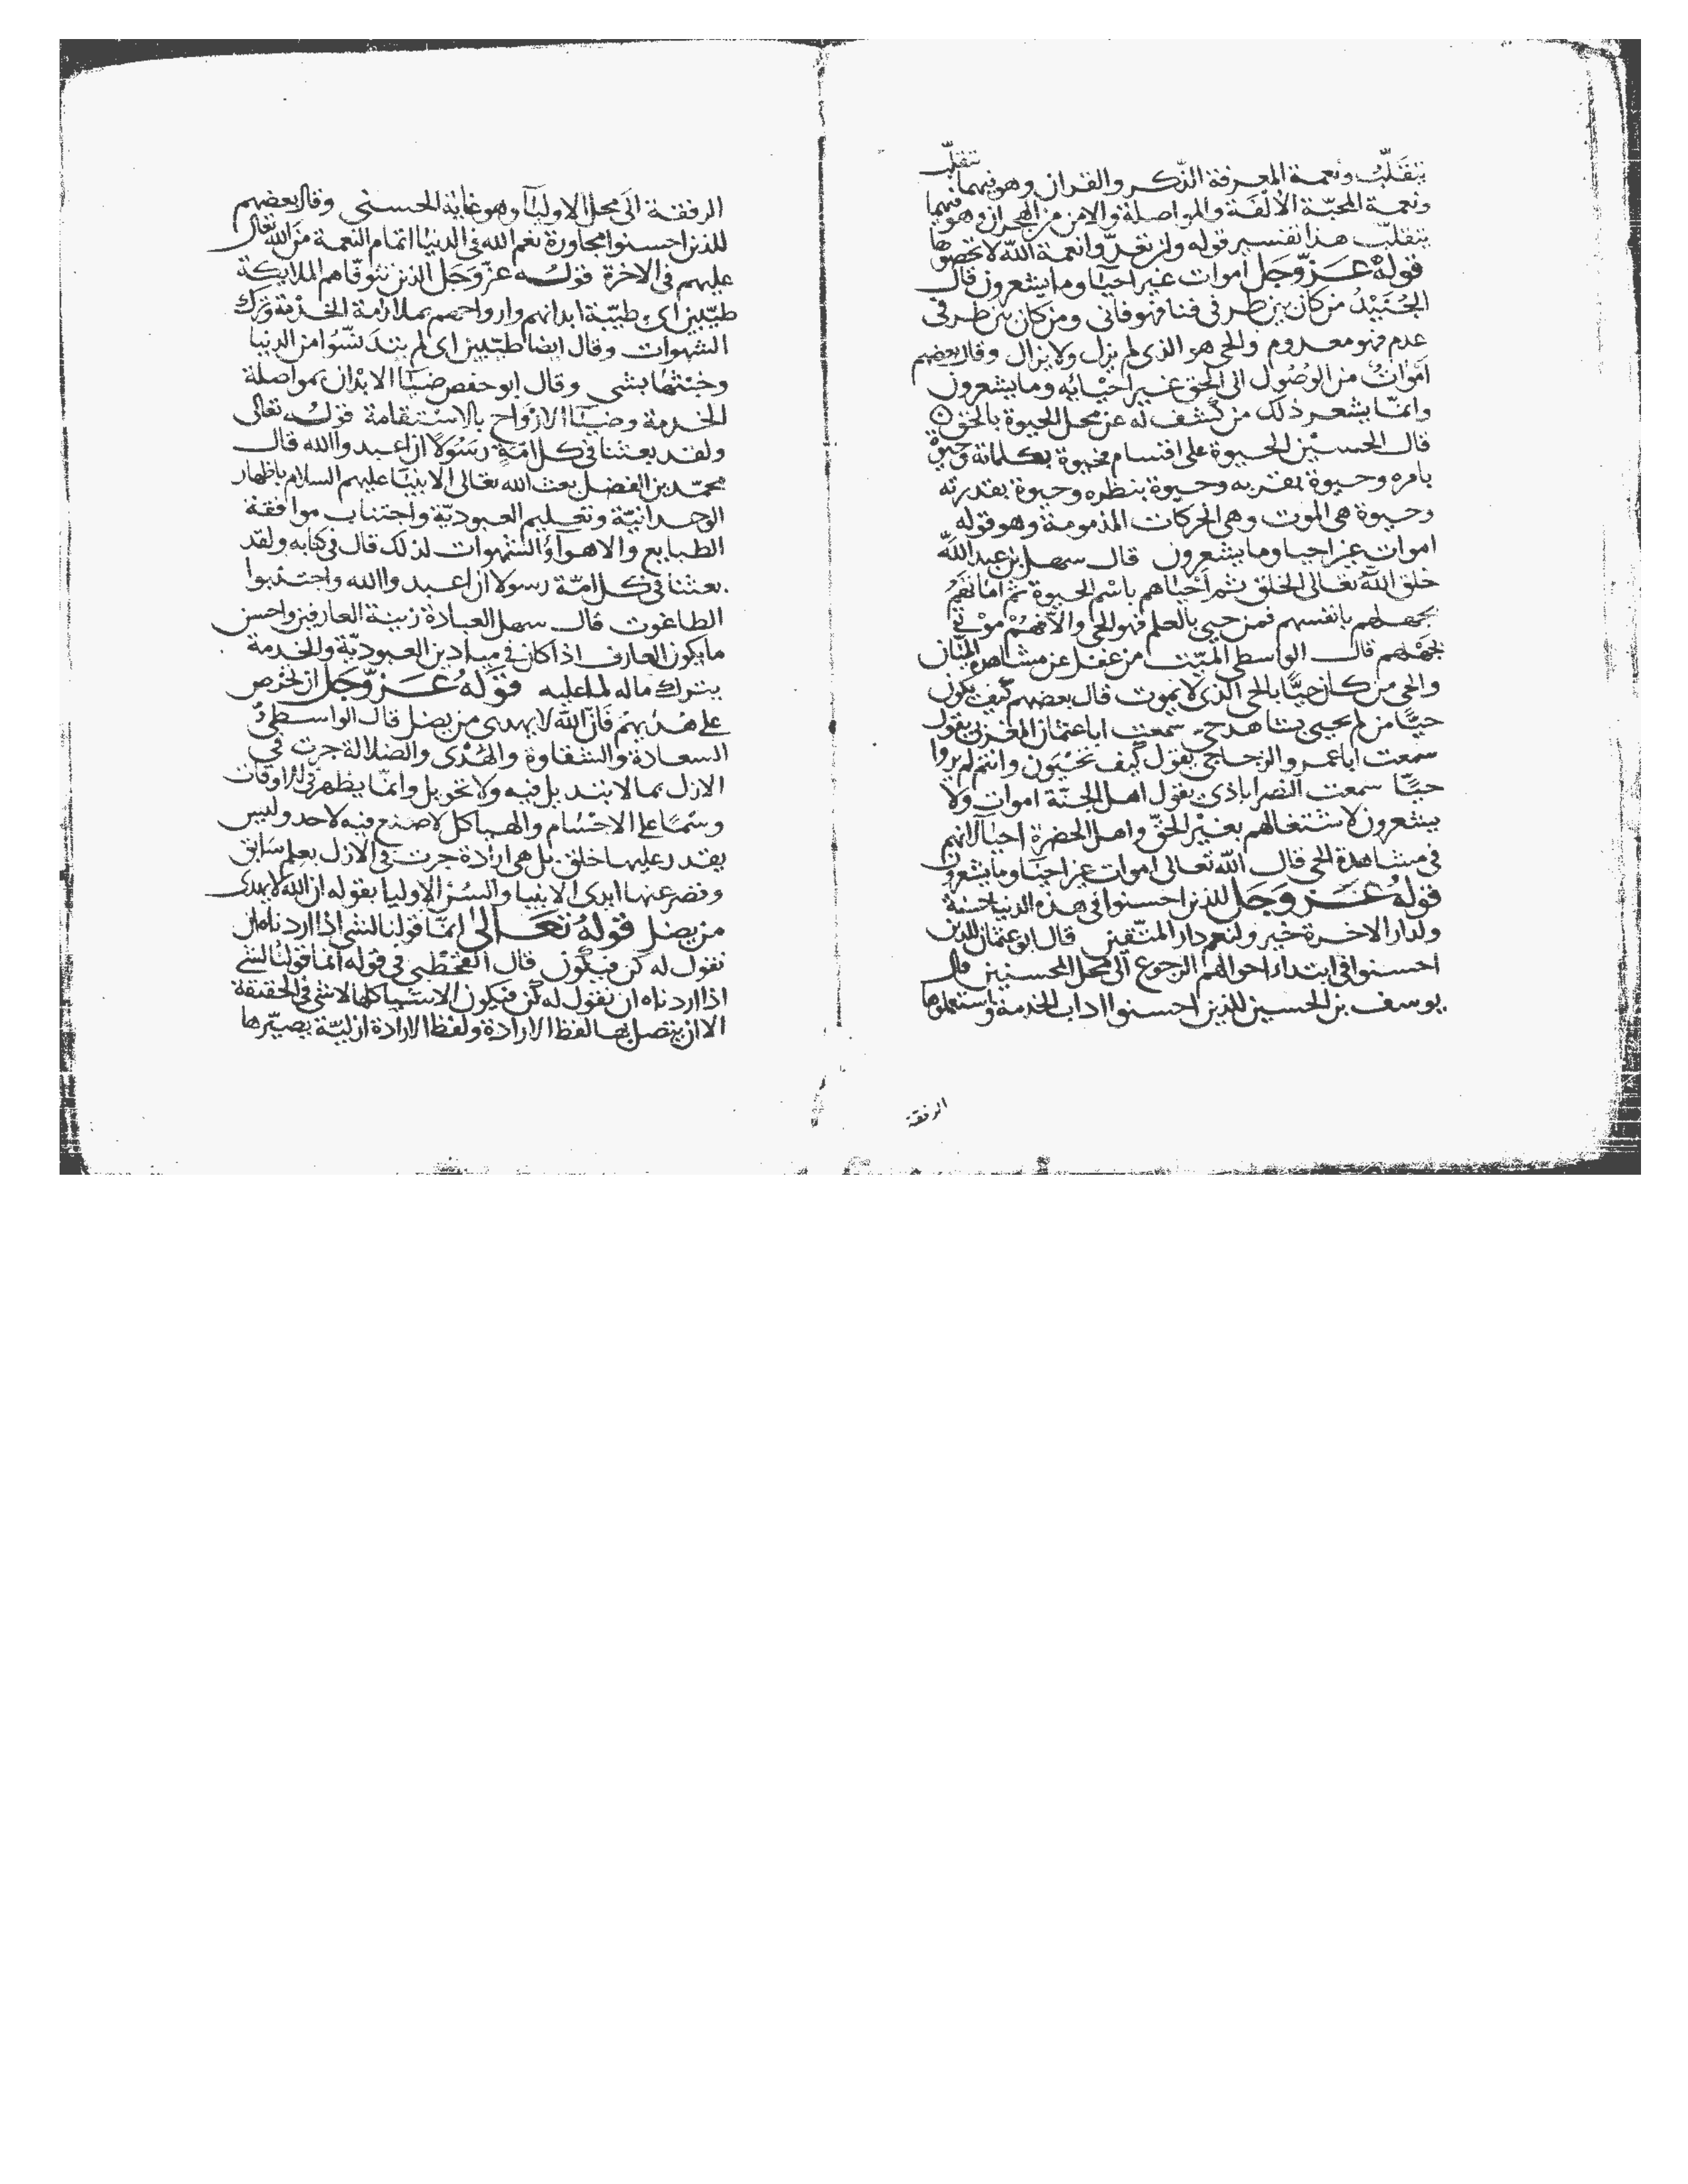 يتقلّب ونعمة المعرفة الذّكر والقران وهو فيهما يتقلّب
ونعمة المحبّة الألفة والمواصلة والامن من الهجران وهو فيهما
يتقلّب هذا تفسير قوله ولن تعدّوا نعمة الله لا تحصوها
قوله عزّ وّجل اموات غير احيا وما يشعرون قال
الجُنَيْدُ من كان بين طرفى فنا فهو فانى ومن كان بين طرفى
عدم فهو معدوم والحى هو الذى لم يزل ولا يزال وقال بعضهم
اموات من الوصول الى الحق غير احيائه وما يشعرون
وانمّا يشعر ذلك من كشف له عن محل الحيوة بالحق
قال الحسين الحيوة على اقسام فحيوة بكلماته وحيوة
بامره وحيوة بقربه وحيوة بنظره وحيوة بقدرته
وحيوة هى الموت وهى الحركات المذمومة وهو قوله
اموات غير احيا وما يشعرون قال سهل بن عبد الله
خلق الله تعالى الخلق ثم احياهم باسْم الحيوة ثم اماتهم
بجهلهم بانفسهم فمن حيى بالعلم فهو الحى والا فهم موتى
بجهلهم قال الواسطى الميّت من غفل عن مشاهدة المنّان
والحى من كان حيًّا بالحى الذى لا يموت قال بعضهم كيف يكون
حيًّا من لم يحيى بشاهد حى سمعت ابا عثمان المغربى يقول
سمعت ابا عمرو الزجاجى يقول كيف تحْيَون وانتم لم تروا
حيًّا سمعت النصراباذى يقول اهل الجنّة اموات ولا
يشعرون لاشتغالهم بغير الحقّ واهل الحضرة احيآ لانهم
فى مشاهدة الحى قال الله تعالى اموات غير احيا وما يشعرون
قوله عَزَّ وَجَل للذين احسنوا فى هذه الدنيا حسنة
ولدار الاخرة خير ولنعم دار المتّقين قال ابو عثمان للذين
احسنوا فى ابتدا احوالهم الرجوع الى محل المحسنين قال
يوسف بن الحسين للذين احسنوا اداب الخدمة واستعملوها
الرفقة
الرفقة الى محل الاوليآ وهو غاية الحسنى وقال بعضهم
للذين احسنوا مجاورة نعم الله فى الدنيا اتمام النعمة من الله تعالى
عليهم فى الاخرة قوله عزّ وَجَل الذين تتوفّاهم الملايكة
طيّبين اى طيّبة ابدانهم وارواحهم بملازمة الخدمة وترك
الشهوات وقال ايضا طيّبين اى لم يتدنسّوا من الدنيا
وخبثها بشى وقال ابو حفص ضيآ الابدان بمواصلة
الخدمة وضيآ الارْوَاح بالاسْتقامة قوله تعالى
ولقد بعثنا فى كل امّةٍ رَسُولًا ان اعبدوا الله قال
محمّد بن الفضل بعث الله تعالى الانبيا عليهم السلام باظهار
الوحدانيّة وتعليم العبوديّة واجتناب موافقة
الطبايع والاهوآ والشهوات لذلك قال فى كتابه ولقد
بعثنا فى كل امّة رسولا ان اعبدوا الله واجتنبوا
الطاغوت قال سهل العبادة زينة العارفين واحسن
ما يكون العارف اذا كان فى ميادين العبوديّة والخدمة
يترك ماله لما عليه قوَله عَزّ وّجَل ان تحرص
على هدٰيهم فَانّ الله لا يهدى من يضل قال الواسطى
السعادة والشقاوة والهُدْى والضلالة جرت فى
الازل بما لا تبديل فيه ولا تحويل وانمّا يظهر فى الاوقات
وسْمًا على الاجْسَام والهياكل لا صنع فيه لاحد وليس
يقدر عليها خلق بل هى ارادة جرت فى الازل بعلم سَابق
وقصر عنها ايدى الانبيا والسن الاوليا بقوله ان الله لا يهدى
من يضل قوله تعَالى انمّا قولنا لشى اذا اردناه ان
نقول له كن فيكون قال القحطبى فى قوله انما قولنا لشى
اذا اردناه ان نقول له كن فيكون الاشيا كلها لا شى فى الحقيقة
الا ان يتصل بها لفظ الارادة ولفظ الارادة ازليّة يصيّرها